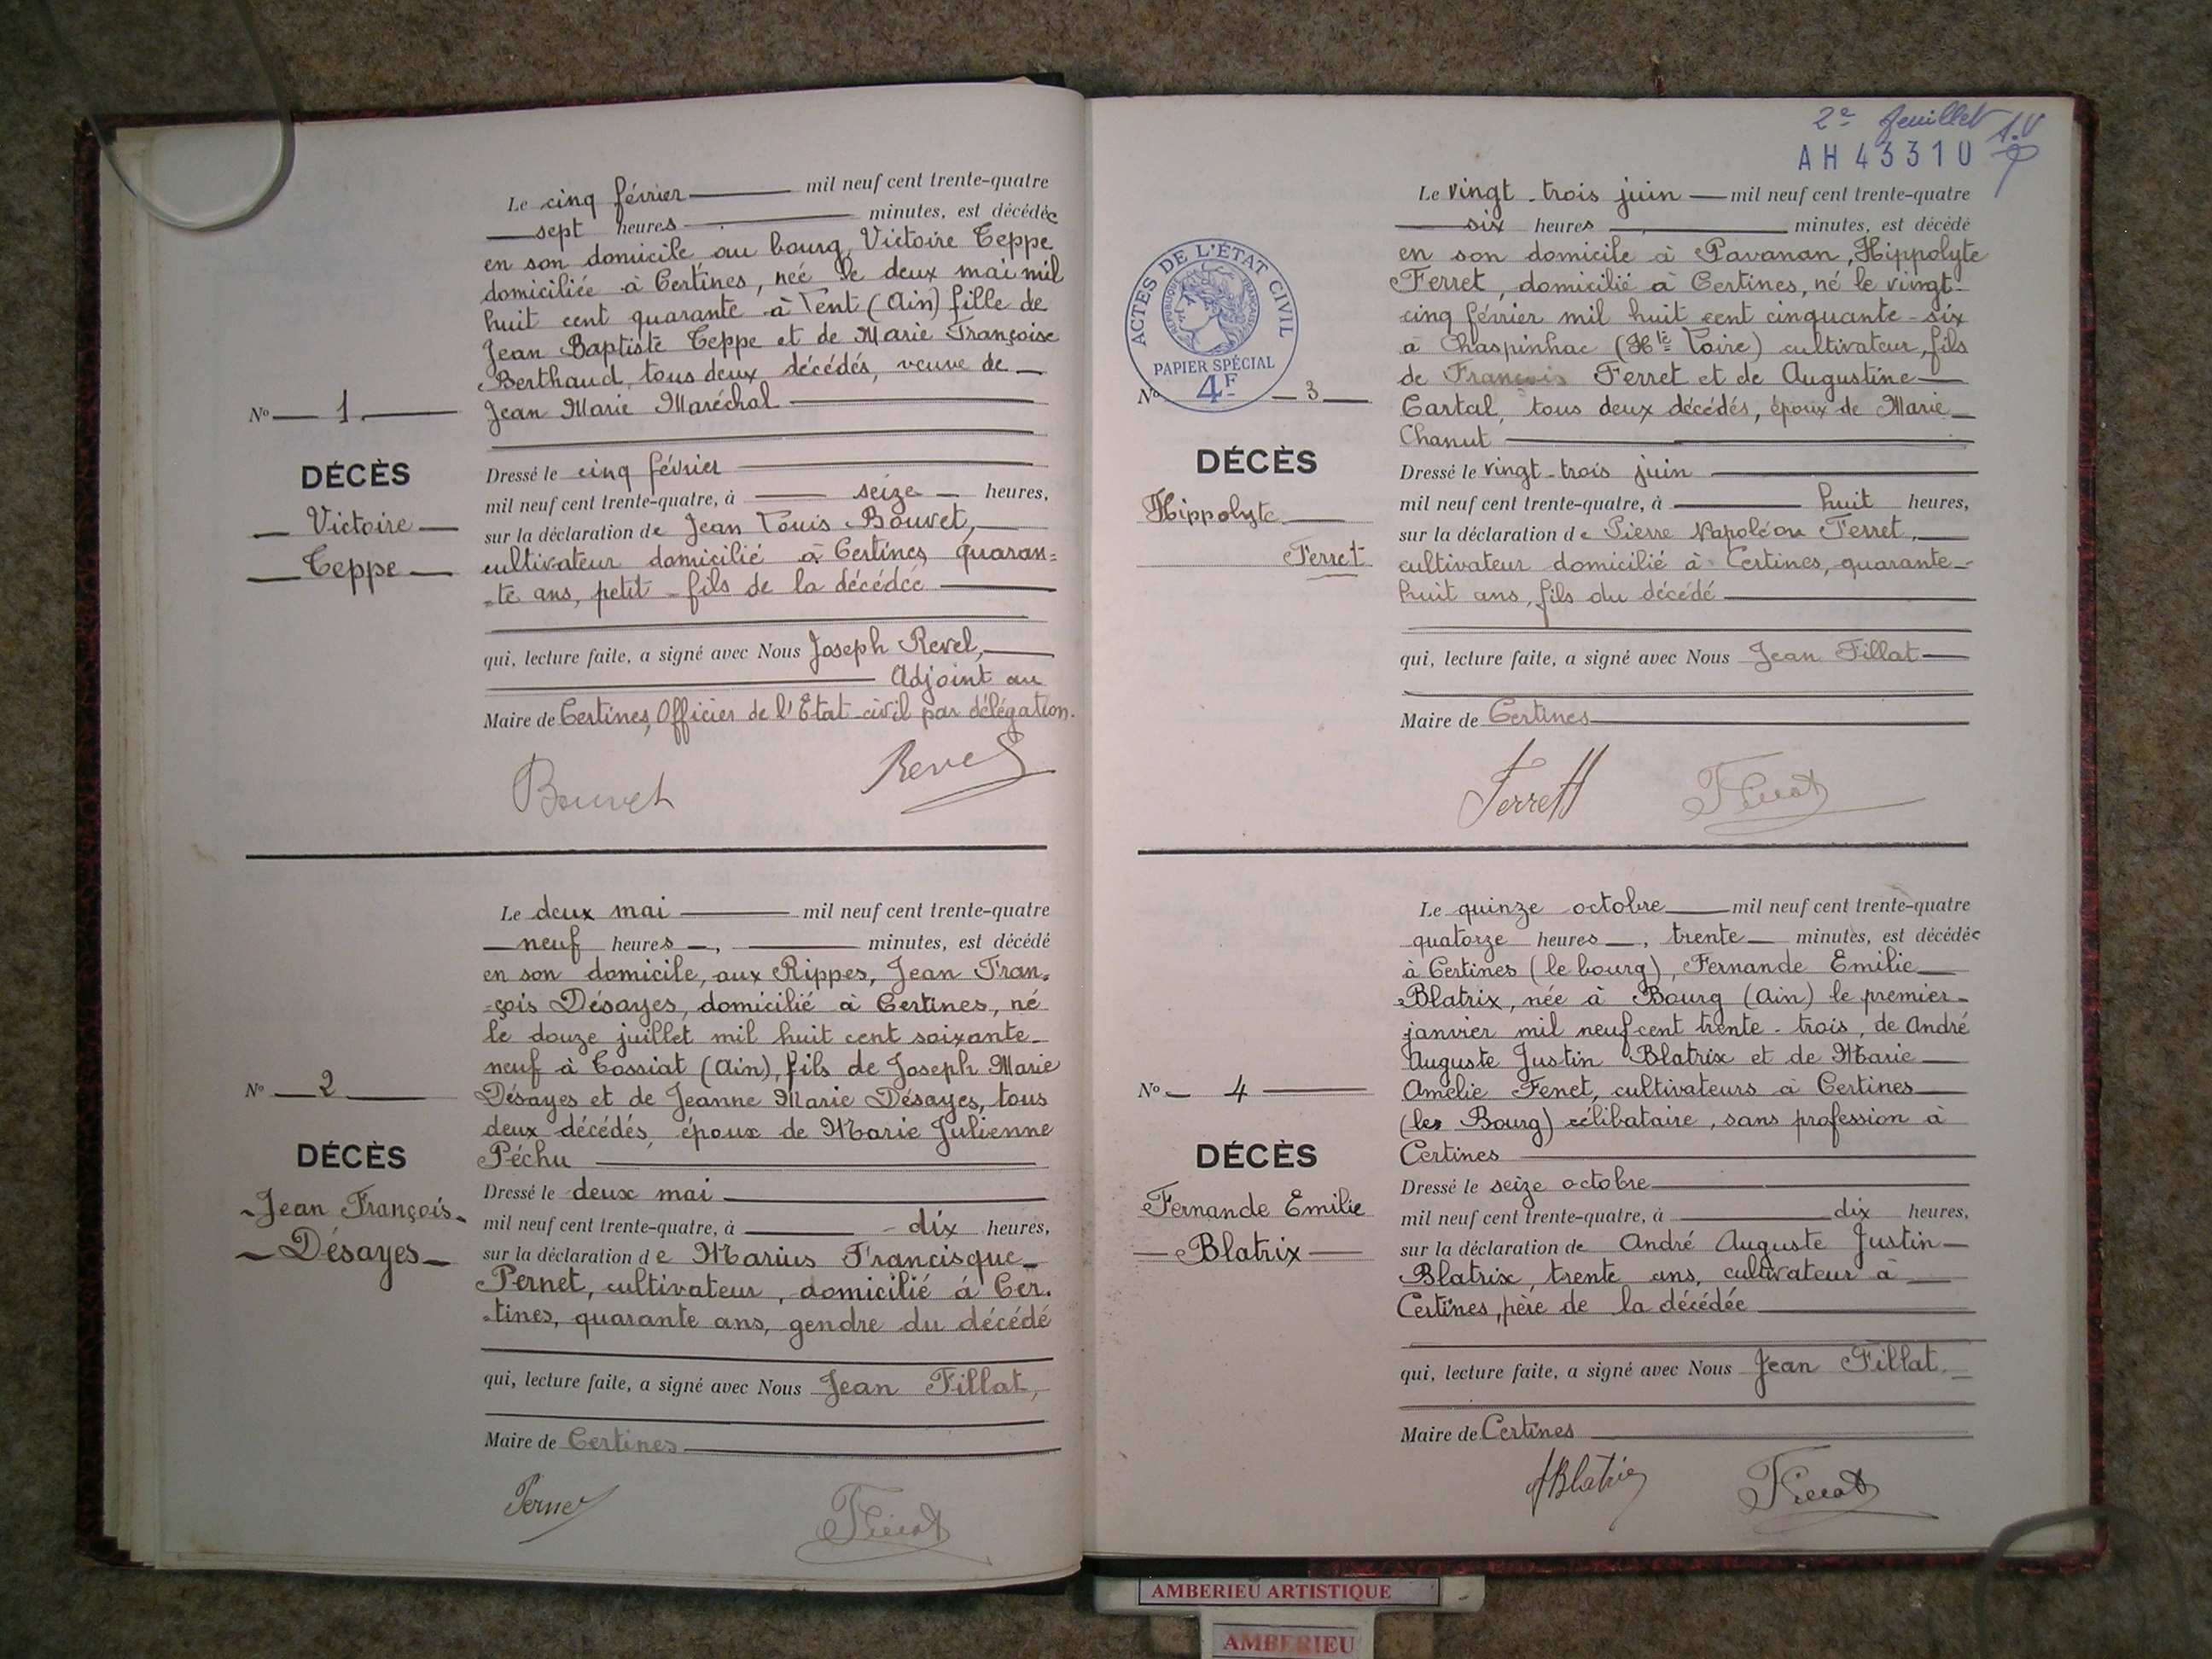 Le cinq février mil neuf cent trente-quatre
sept heures minutes, est décédée
en son domicile au bourg, Victoire Teppe
domiciliée à Certines, née le deux mai mil
huit cent quarante à Lent (Ain) fille de
Jean Baptiste Teppe et de Marie Françoise
Berthaud, tous deux décédés, veuve de
Jean Marie Maréchal
N° 1
DÉCÈS
Victoire
Teppe
Dressé le cinq février
mil neuf cent trente-quatre, à seize heures,
sur la déclaration de Jean Louis Bouvet,
cultivateur domicilié à Certines, quaran=
=te ans, petit-fils de la décédée
qui, lecture faite, a signé avec Nous Joseph Revel,
Adjoint au
Maire de Certines, Officier de l'Etat-civil par délégation.
Bouvet Revel
Le deux mai mil neuf cent trente-quatre
neuf heures, minutes, est décédé
en son domicile, aux Rippes, Jean Fran=
=çois Désayes, domicilié à Certines, né
le douze juillet mil huit cent soixante-
neuf à Tossiat (Ain), fils de Joseph Marie
Désayes et de Jeanne Marie Désayes, tous
deux décédés, époux de Marie Julienne
Péchu
N° 2
DÉCÈS
Jean François
Désayes
Dressé le deux mai
mil neuf cent trente-quatre, à dix heures,
sur la déclaration de Marius Francisque
Pernet, cultivateur, domicilié à Cer=
=tines, quarante ans, gendre du décédé
qui, lecture faite, a signé avec Nous Jean Fillat,
Maire de Certines
Pernet Fillat
2e feuillet
AH 43310
Le vingt-trois juin mil neuf cent trente-quatre
six heures, minutes, est décédé
en son domicile à Pavanan, Hippolyte
Ferret, domicilié à Certines, né le vingt-
cinq février mil huit cent cinquante-six
à Chaspinhac (Hte Loire) cultivateur, fils
de François Ferret et de Augustine
Cartal, tous deux décédés, époux de Marie
Chanut
ACTES DE L'ÉTAT CIVIL
RÉPUBLIQUE FRANÇAISE
PAPIER SPÉCIAL
4F
N° 3
DÉCÈS
Hippolyte
Ferret
Dressé le vingt-trois juin
mil neuf cent trente-quatre, à huit heures,
sur la déclaration de Pierre Napoléon Ferret,
cultivateur domicilié à Certines, quarante-
huit ans, fils du décédé
qui, lecture faite, a signé avec Nous Jean Fillat
Maire de Certines
Ferrett Fillat
Le quinze octobre mil neuf cent trente-quatre
quatorze heures, trente minutes, est décédée
à Certines (le bourg), Fernande Emilie
Blatrix, née à Bourg (Ain) le premier
janvier mil neuf cent trente-trois, de André
Auguste Justin Blatrix et de Marie
Amélie Fenet, cultivateurs à Certines
(les Bourg) célibataire, sans profession à
Certines
N° 4
DÉCÈS
Fernande Emilie
Blatrix
Dressé le seize octobre
mil neuf cent trente-quatre, à dix heures,
sur la déclaration de André Auguste Justin
Blatrix, trente ans, cultivateur à
Certines, père de la décédée
qui, lecture faite, a signé avec Nous Jean Fillat,
Maire de Certines
ABlatrix Fillat
AMBERIEU ARTISTIQUE
AMBERIEU